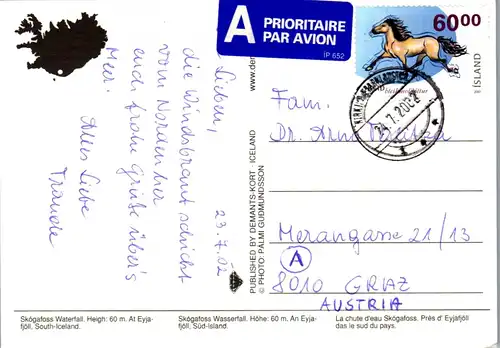 A PRIORITAIRE
PAR AVION
IP 652
6000
ÍSLAND
Lieben,
die Windsbraut schickt
vom Norden her
euch frohe Grüße über's
Meer!
Alles Liebe
Traudl
23.7.02
www.dem
PUBLISHED BY DEMANTS-KORT · ICELAND
© PHOTO: PÁLMI GUÐMUNDSSON
Fam.
Dr. Arne
Merangasse 21/13
A
8010 GRAZ
AUSTRIA
24.7.2002
Skógafoss Waterfall. Heigh: 60 m. At Eyja-
fjöll. South-Iceland.
Skógafoss Wasserfall. Höhe: 60 m. An Eyja-
fjöll, Süd-Island.
La chute d'eau Skógafoss. Près d' Eyjafjöll
das le sud du pays.